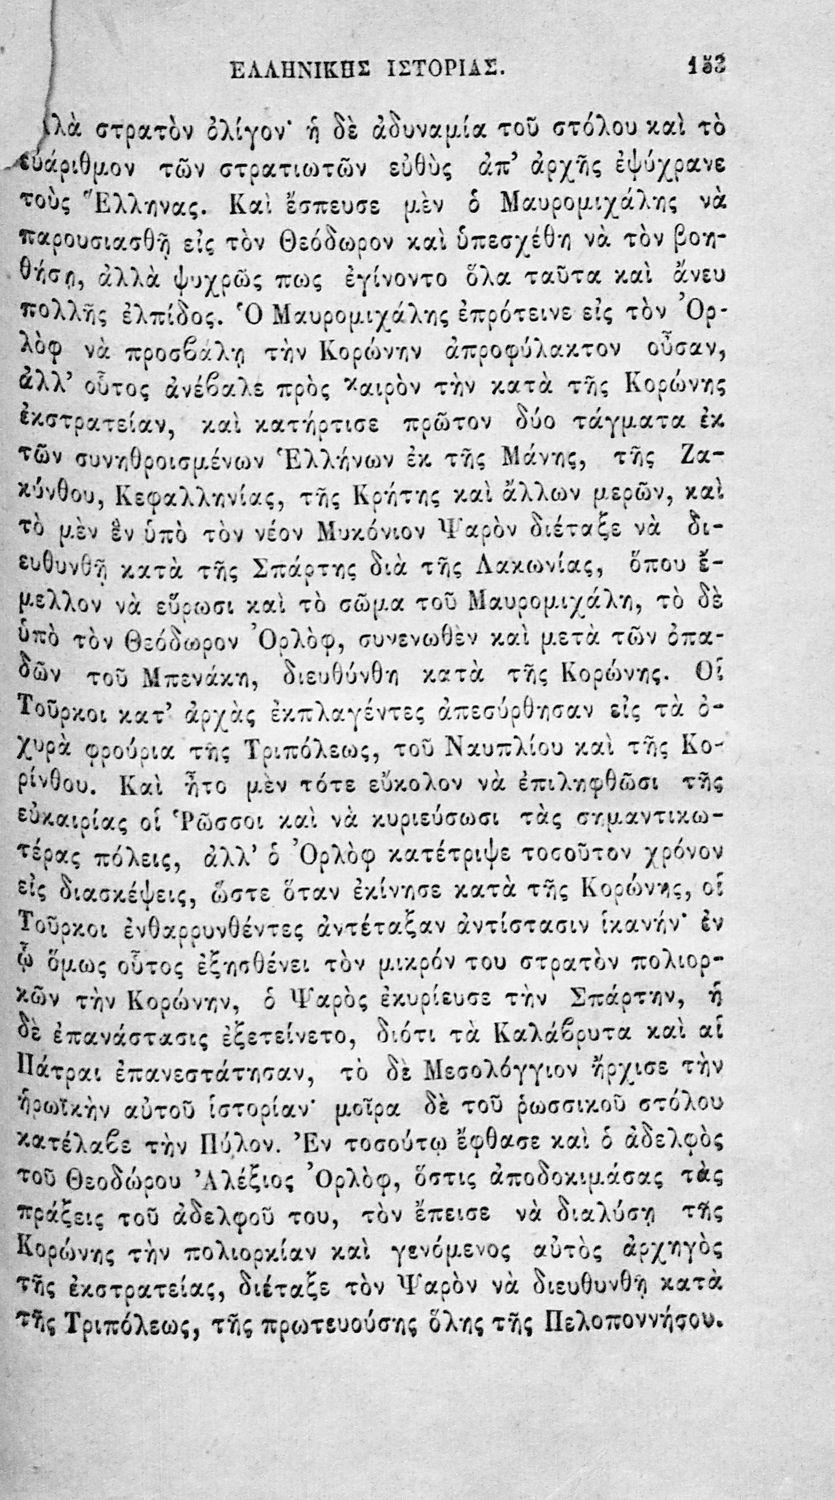 ΕΛΛΗΝΙΚΗΣ ΙΣΤΟΡΙΑΣ. 153
λὰ στρατὸν ὀλίγον· ἡ δὲ ἀδυναμία τοῦ στόλου καὶ τὸ
εὐάριθμον τῶν στρατιωτῶν εὐθὺς ἀπ’ ἀρχῆς ἐψύχρανε
τοὺς Ἕλληνας. Καὶ ἔσπευσε μὲν ὁ Μαυρομιχάλης νὰ
παρουσιασθῇ εἰς τὸν Θεόδωρον καὶ ὑπεσχέθη νὰ τὸν βοη-
θήσῃ, ἀλλὰ ψυχρῶς πως ἐγίνοντο ὅλα ταῦτα καὶ ἄνευ
πολλῆς ἐλπίδος. Ὁ Μαυρομιχάλης ἐπρότεινε εἰς τὸν Ὀρ-
λὸφ νὰ προσβάλῃ τὴν Κορώνην ἀπροφύλακτον οὖσαν,
ἀλλ’ οὗτος ἀνέβαλε πρὸς καιρὸν τὴν κατὰ τῆς Κορώνης
ἐκστρατείαν, καὶ κατήρτισε πρῶτον δύο τάγματα ἐκ
τῶν συνηθροισμένων Ἑλλήνων ἐκ τῆς Μάνης, τῆς Ζα-
κύνθου, Κεφαλληνίας, τῆς Κρήτης καὶ ἄλλων μερῶν, καὶ
τὸ μὲν ἓν ὑπὸ τὸν νέον Μυκόνιον Ψαρὸν διέταξε νὰ δι-
ευθυνθῇ κατὰ τῆς Σπάρτης διὰ τῆς Λακωνίας, ὅπου ἔ-
μελλον νὰ εὕρωσι καὶ τὸ σῶμα τοῦ Μαυρομιχάλη, τὸ δὲ
ὑπὸ τὸν Θεόδωρον Ὀρλὸφ, συνενωθὲν καὶ μετὰ τῶν ὀπα-
δῶν τοῦ Μπενάκη, διευθύνθη κατὰ τῆς Κορώνης. Οἱ
Τοῦρκοι κατ’ ἀρχὰς ἐκπλαγέντες ἀπεσύρθησαν εἰς τὰ ὀ-
χυρὰ φρούρια τῆς Τριπόλεως, τοῦ Ναυπλίου καὶ τῆς Κο-
ρίνθου. Καὶ ἦτο μὲν τότε εὔκολον νὰ ἐπιληφθῶσι τῆς
εὐκαιρίας οἱ Ῥῶσσοι καὶ νὰ κυριεύσωσι τὰς σημαντικω-
τέρας πόλεις, ἀλλ’ ὁ Ὀρλὸφ κατέτριψε τοσοῦτον χρόνον
εἰς διασκέψεις, ὥστε ὅταν ἐκίνησε κατὰ τῆς Κορώνης, οἱ
Τοῦρκοι ἐνθαρρυνθέντες ἀντέταξαν ἀντίστασιν ἱκανήν· ἐν
ᾧ ὅμως οὗτος ἐξησθένει τὸν μικρόν του στρατὸν πολιορ-
κῶν τὴν Κορώνην, ὁ Ψαρὸς ἐκυρίευσε τὴν Σπάρτην, ἡ
δὲ ἐπανάστασις ἐξετείνετο, διότι τὰ Καλάβρυτα καὶ αἱ
Πάτραι ἐπανεστάτησαν, τὸ δὲ Μεσολόγγιον ἤρχισε τὴν
ἡρωϊκὴν αὑτοῦ ἱστορίαν· μοῖρα δὲ τοῦ ῥωσσικοῦ στόλου
κατέλαβε τὴν Πύλον. Ἐν τοσούτῳ ἔφθασε καὶ ὁ ἀδελφὸς
τοῦ Θεοδώρου Ἀλέξιος Ὀρλὸφ, ὅστις ἀποδοκιμάσας τὰς
πράξεις τοῦ ἀδελφοῦ του, τὸν ἔπεισε νὰ διαλύσῃ τῆς
Κορώνης τὴν πολιορκίαν καὶ γενόμενος αὐτὸς ἀρχηγὸς
τῆς ἐκστρατείας, διέταξε τὸν Ψαρὸν νὰ διευθυνθῇ κατὰ
τῆς Τριπόλεως, τῆς πρωτευούσης ὅλης τῆς Πελοποννήσου.